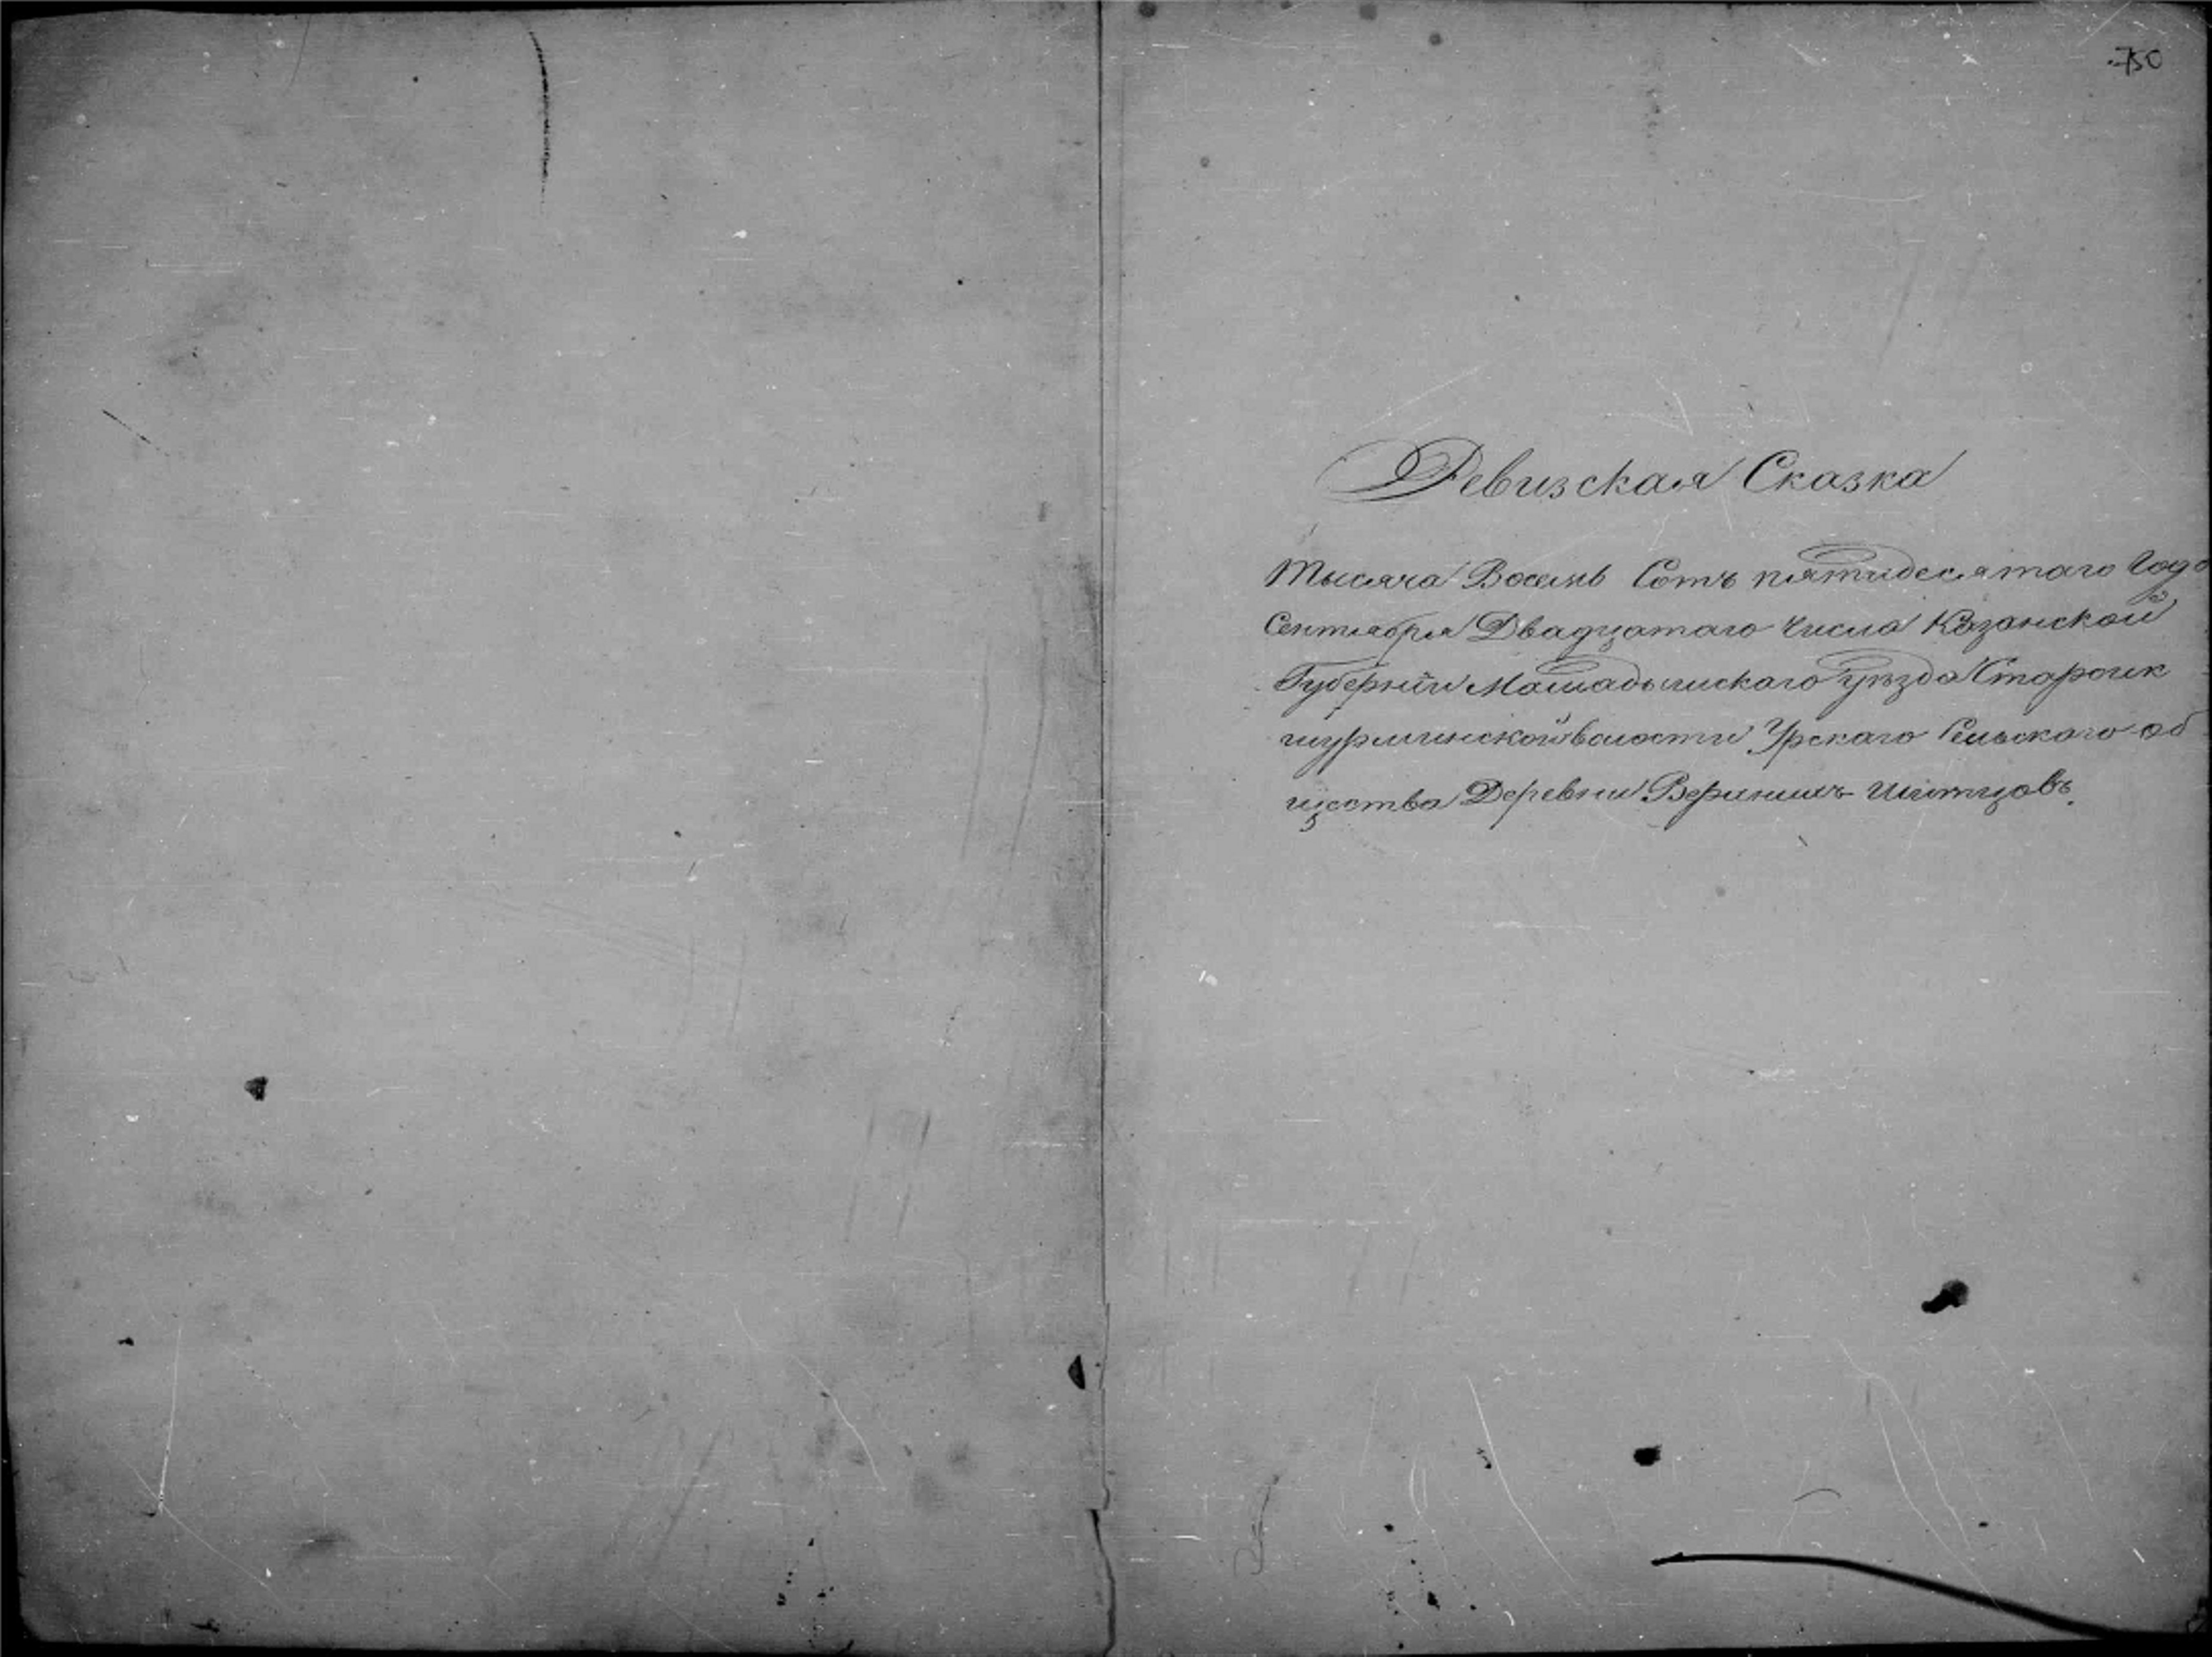 750
Ревизская Сказка
Тысяча Восемь Сотъ пятидесятаго Года
Сентября Двадцатаго числа Казанской
Губерніи Мамадышскаго уѣзда Староик
шурминской волости Урскаго Сельскаго об
щества Деревни Верхнихъ Шитцовъ.